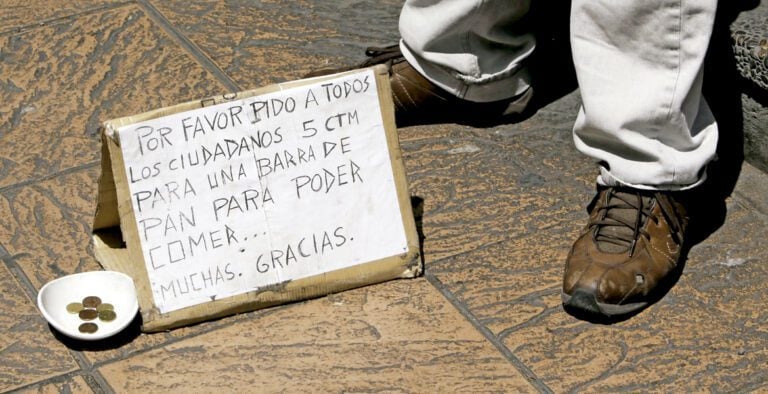 POR FAVOR PIDO A TODOS
LOS CIUDADANOS 5 CTM
PARA UNA BARRA DE
PAN PARA PODER
COMER...
MUCHAS. GRACIAS.